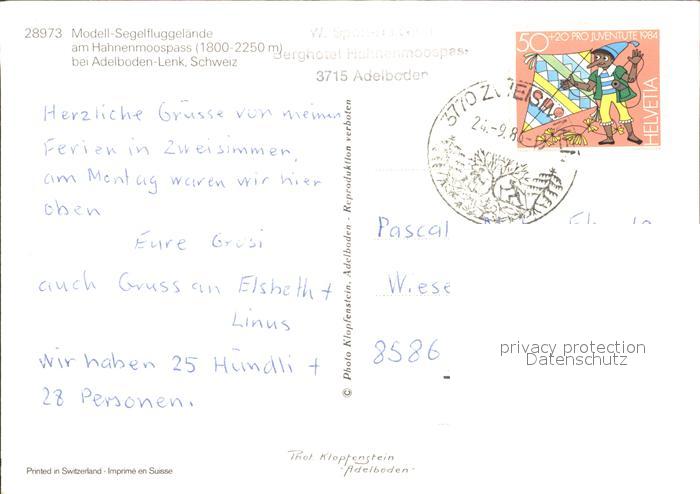 28973 Modell-Segelfluggelände
am Hahnenmoospass (1800-2250 m)
bei Adelboden-Lenk, Schweiz
Berghotel Hahnenmoospass
3715 Adelboden
50+20 PRO JUVENTUTE 1984
HELVETIA
3770 ZWEISIMMEN
Herzliche Grüsse von meinen
Ferien in Zweisimmen,
am Montag waren wir hier
oben
Eure Grosi
auch Gruss an Elsbeth +
Linus
Wir haben 25 Hündli +
28 Personen.
© Photo Klopfenstein, Adelboden - Reproduktion verboten
Pascal
Wiese
8586
privacy protection
Datenschutz
Printed in Switzerland - Imprimé en Suisse
Phot. Klopfenstein
-Adelboden-